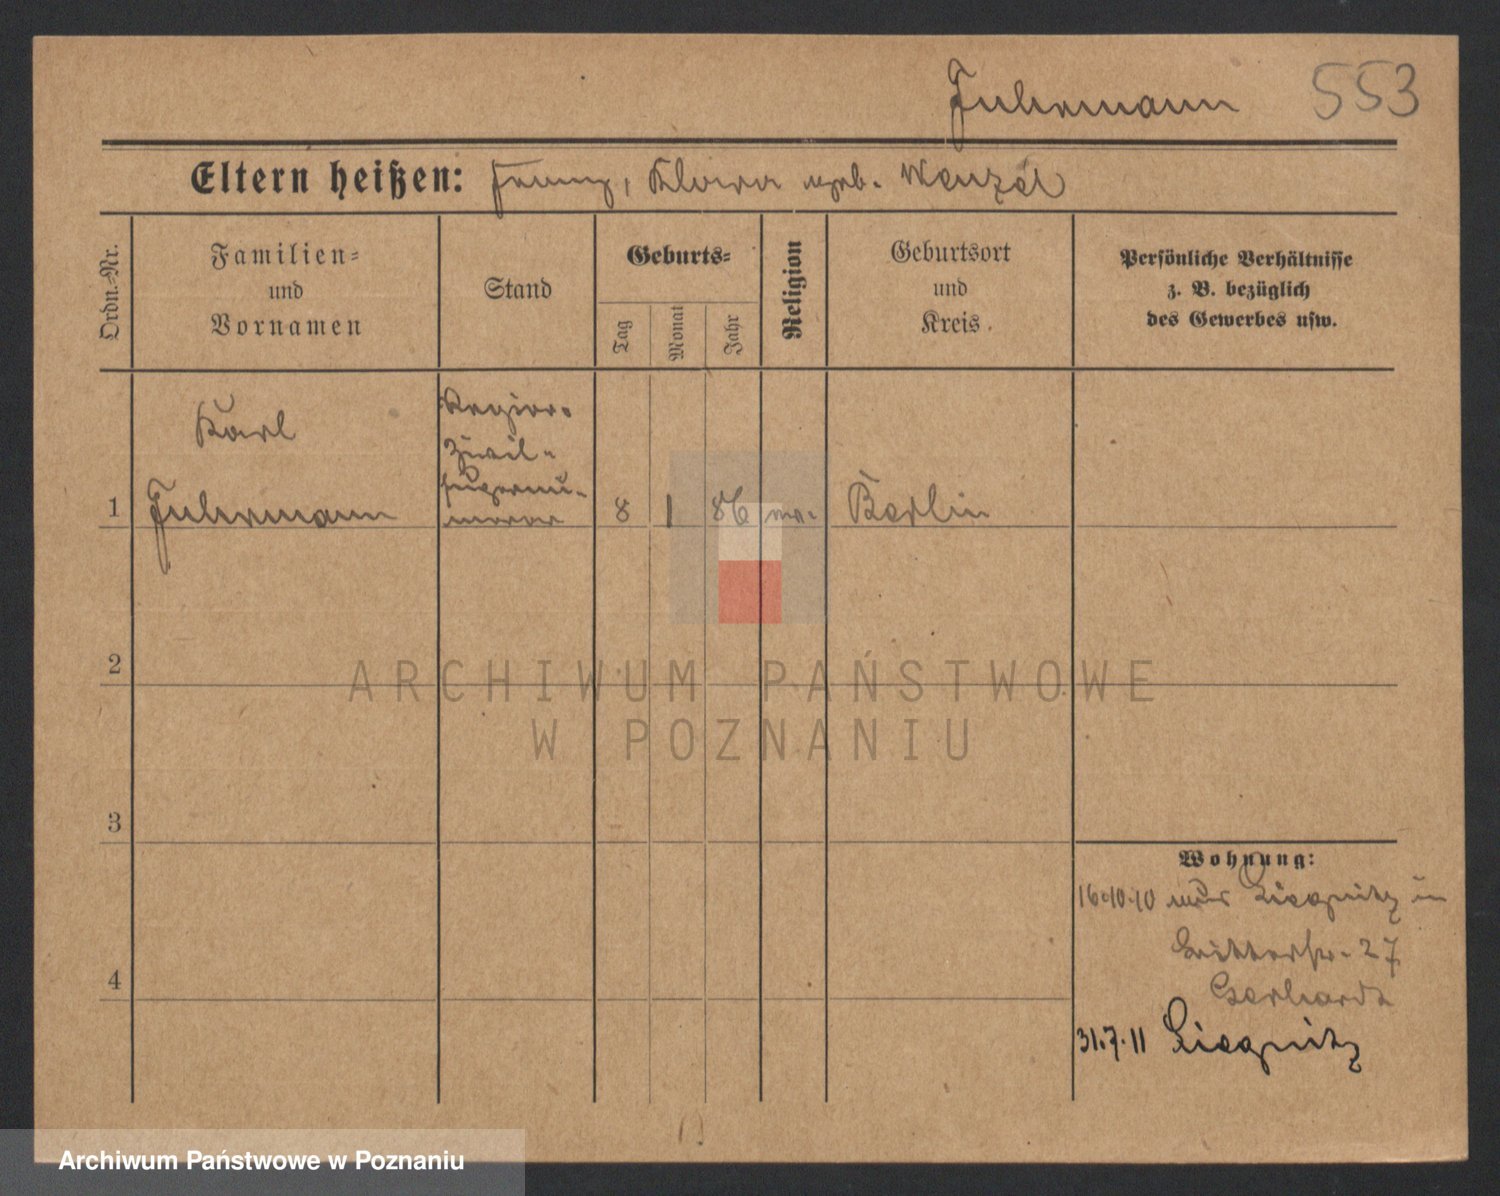 Fuhrmann 553
Eltern heißen: Franz, Klara geb. Wenzel
Ordn.-Nr.
Familien-
und
Vornamen
Stand
Geburts-
Tag
Monat
Jahr
Religion
Geburtsort
und
Kreis.
Persönliche Verhältnisse
z. B. bezüglich
des Gewerbes usw.
Karl
Fuhrmann
Regier.
Zivil-
supernu-
merar
1
8
1
86
ev.
Berlin
2
3
4
Wohnung:
16.10.10 aus Liegnitz in
Ritterstr. 27
Gerhardt
31.7.11 Liegnitz
ARCHIWUM PAŃSTWOWE
W POZNANIU
Archiwum Państwowe w Poznaniu